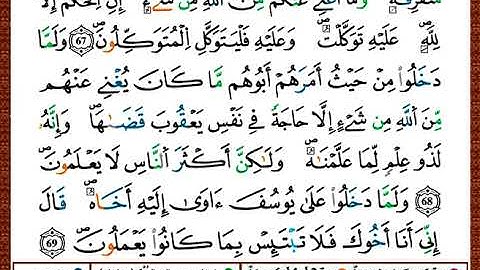 مُّتَفَرِّقَةٍ ۖ وَمَآ أُغْنِى عَنكُم مِّنَ ٱللَّهِ مِن شَىْءٍ ۖ إِنِ ٱلْحُكْمُ إِلَّا
لِلَّهِ ۖ عَلَيْهِ تَوَكَّلْتُ ۖ وَعَلَيْهِ فَلْيَتَوَكَّلِ ٱلْمُتَوَكِّلُونَ ٦٧ وَلَمَّا
دَخَلُوا۟ مِنْ حَيْثُ أَمَرَهُمْ أَبُوهُم مَّا كَانَ يُغْنِى عَنْهُم
مِّنَ ٱللَّهِ مِن شَىْءٍ إِلَّا حَاجَةً فِى نَفْسِ يَعْقُوبَ قَضَىٰهَا ۚ وَإِنَّهُۥ
لَذُو عِلْمٍ لِّمَا عَلَّمْنَٰهُ وَلَٰكِنَّ أَكْثَرَ ٱلنَّاسِ لَا يَعْلَمُونَ
٦٨ وَلَمَّا دَخَلُوا۟ عَلَىٰ يُوسُفَ ءَاوَىٰٓ إِلَيْهِ أَخَاهُ ۖ قَالَ
إِنِّىٓ أَنَا۠ أَخُوكَ فَلَا تَبْتَئِسْ بِمَا كَانُوا۟ يَعْمَلُونَ ٦٩